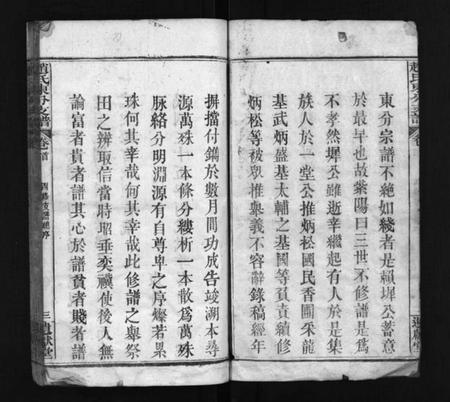 東分宗譜不絕如綫者是賴墀公蓄意
於最早也故紫陽曰三世不修譜是爲
不孝然墀公雖逝幸繼起有人於是集
族人於一堂公推炳松國民香圃采龍
基武炳盛基太輔之基閣等負責續修
炳松等被衆推舉義不容辭錄稿經年
摒擋付鐫於數月間功成告竣溯本尋
源萬殊一本條分縷析一本散爲萬殊
脉絡分明淵源有自尊卑之序燦若累
珠何其幸哉何其幸哉此修譜之舉祭
田之辨取信當時昭垂奕禩使後人無
論富者貴者譜其心於譜貧者賤者譜
趙氏東分支譜
卷首
四修支譜 序
三